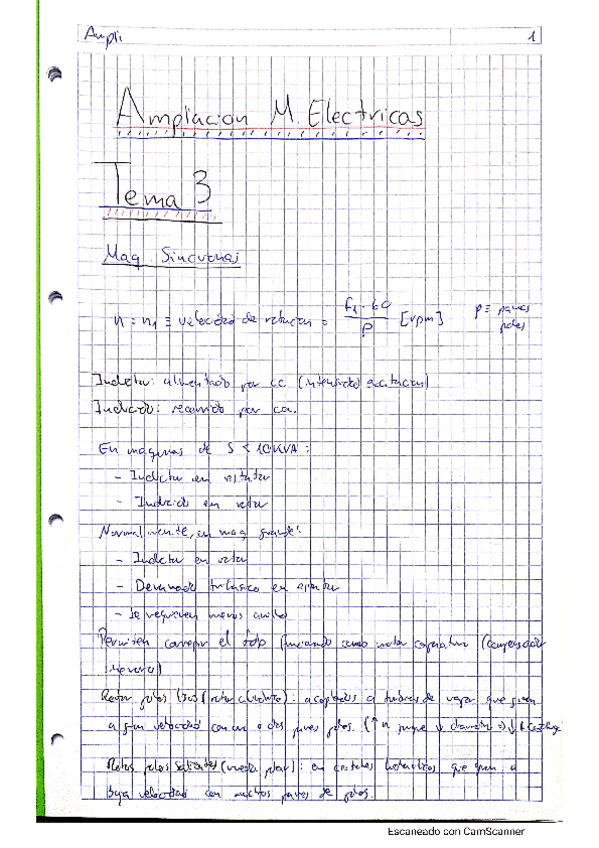 Ampli 1
Ampliacion M. Electricas
Tema 3
Maq. Sincronas
n = n₁ ≡ velocidad de rotacion = f₁·60 / P [rpm] P ≡ pares polos
Inductor: alimentado por cc (intensidad excitacion)
Inducido: recorrido por ca.
En maquinas de S < 10KVA:
- Inductor en estator
- Inducido en rotor
Normalmente, en maq grande:
- Inductor en rotor
- Devanado trifasico en
- Se requieren menos anillos
Permiten corregir el fdp funcionando como motor (compensador
sincrono)
Rotor polos (rotor cilindrico): acoplados a turbinas de vapor que giren
a gran velocidad con un o dos pares polos. (↑ n
Rotor polos salientes (rueda polar): en centrales hidraulicas que giren a
baja velocidad con muchos pares de polos.
Escaneado con CamScanner